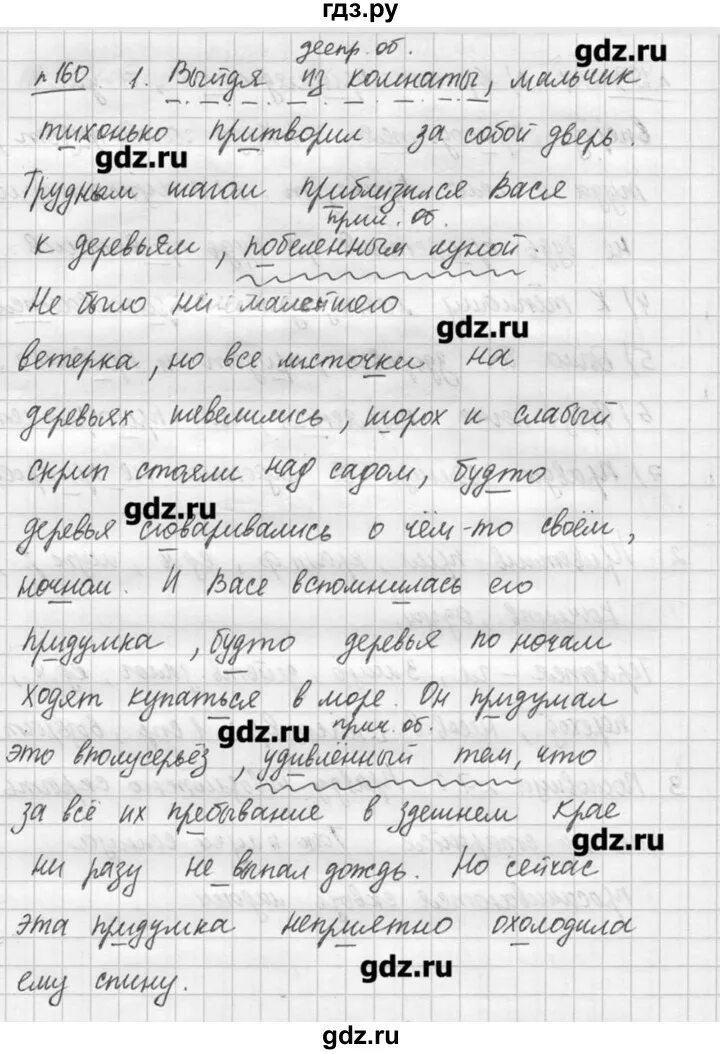 гдз.ру
gdz.ru
деепр. об.
п 160 1. Выйдя из комнаты, мальчик
тихонько притворил за собой дверь.
gdz.ru
Трудным шагом приблизился Вася
прич. об.
к деревьям, побеленным луной.
Не было ни малейшего
gdz.ru
ветерка, но все листочки на
деревьях шевелились, шорох и слабый
скрип стояли над садом, будто
gdz.ru
деревья сговаривались о чём-то своём,
ночном. И Васе вспомнилась его
придумка, будто деревья по ночам
ходят купаться в море. Он придумал
gdz.ru прич. об.
это вполусерьёз, удивлённый тем, что
за всё их пребывание в здешнем крае
gdz.ru
ни разу не выпал дождь. Но сейчас
эта придумка неприятно охолодила
gdz.ru
ему спину.
gdz.ru